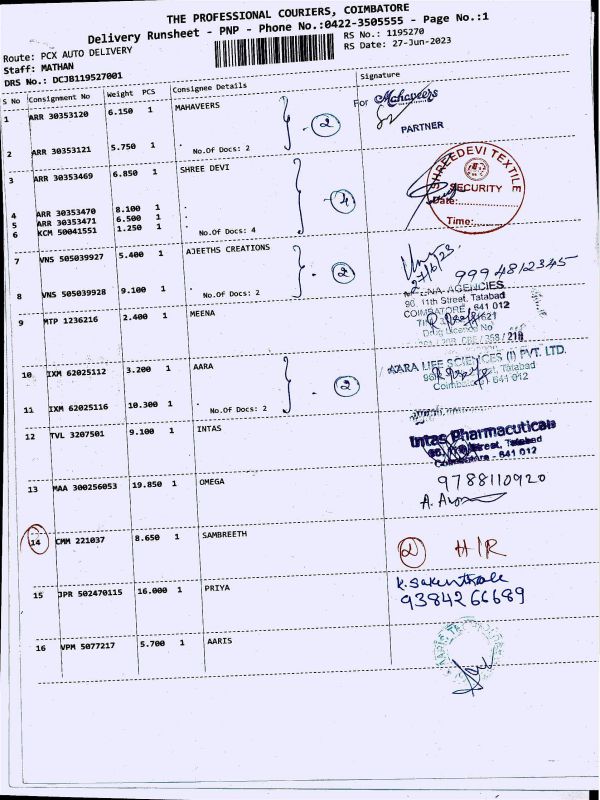 THE PROFESSIONAL COURIERS, COIMBATORE
Delivery Runsheet - PNP - Phone No.:0422-3505555 - Page No.:1
Route: PCX AUTO DELIVERY
RS No.: 1195270
Staff: MATHAN
RS Date: 27-Jun-2023
DRS No.: DCJB119527001
S No Consignment No Weight PCS Consignee Details Signature
1 ARR 30353120 6.150 1 MAHAVEERS
For Mahaveers
2
PARTNER
2 ARR 30353121 5.750 1 .
No.Of Docs: 2
3 ARR 30353469 6.850 1 SHREE DEVI
SHREEDEVI TEXTILE
SECURITY
Date:
Time:
4 ARR 30353470 8.100 1 .
4
5 ARR 30353471 6.500 1 .
6 KCM 50041551 1.250 1 . No.Of Docs: 4
7 VNS 505039927 5.400 1 AJEETHS CREATIONS
27/6/23
2
9994812345
8 VNS 505039928 9.100 1 .
No.Of Docs: 2
9 MTP 1236216 2.400 1 MEENA
AGENCIES
96, 11th Street, Tatabad
COIMBATORE - 641 012
Drug Licence No
10 IXM 62025112 3.200 1 AARA
2
AARA LIFE SCIENCES (I) PVT. LTD.
Tatabad
Coimbatore - 641 012
11 IXM 62025116 10.300 1 .
No.Of Docs: 2
12 TVL 3207501 9.100 1 INTAS
Intas Pharmaceutical
Street, Tatabad
Coimbatore - 641 012
13 MAA 300256053 19.850 1 OMEGA
9788110920
14 CMM 221037 8.650 1 SAMBREETH
2 H/R
15 JPR 502470115 16.000 1 PRIYA
9384266689
16 VPM 5077217 5.700 1 AARIS